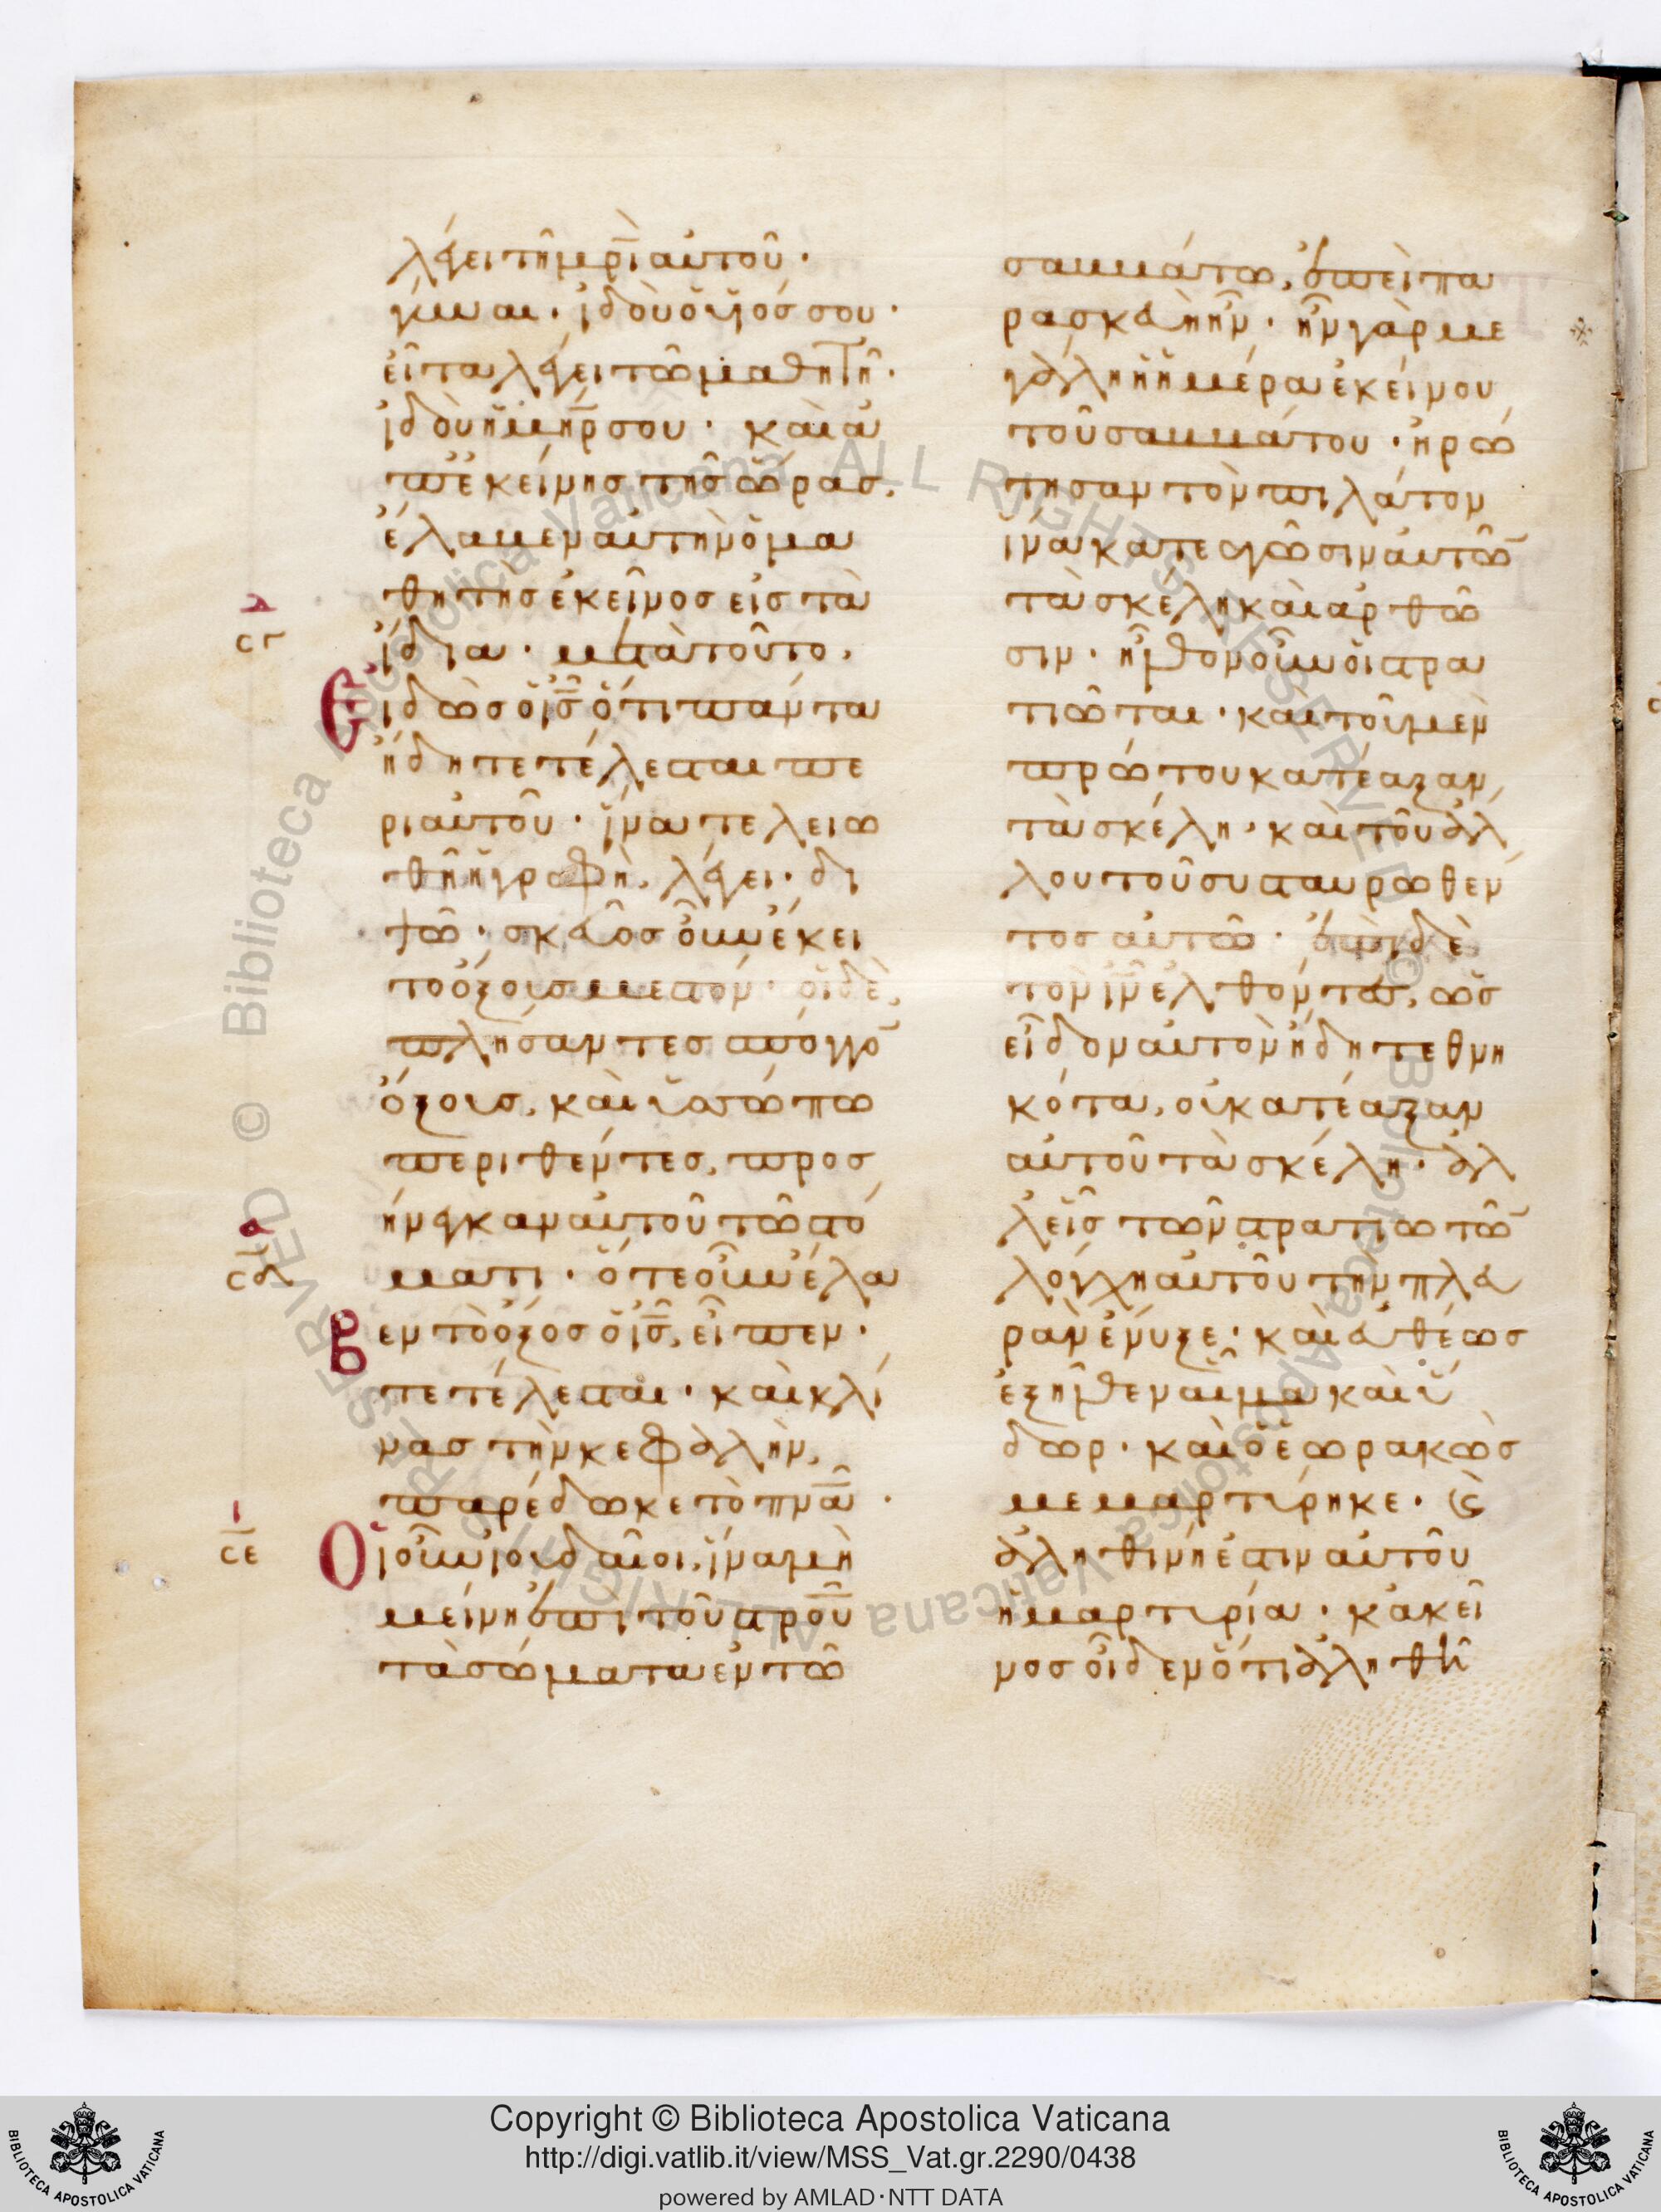 λέγει τῆ μρ̅ὶ αὐτοῦ·
γύναι· ἰδοὺ ὁ ὑἱός σου·
εἶτα λέγει τῶ μαθητῆ·
ἰδοὺ ἡ μη̅ρ σου· καὶ ἀ
π' ἐκείνης τῆς ὥρας,
ἔλαβεν αὐτὴν ὁ μα
θητὴς ἐκεῖνος εἰς τὰ
ἴδια· μετὰ τοῦτο,
Εἰδὼς ὁ ι̅ς̅ ὅτι πάντα
ἤδη τετέλεσται πε
ρὶ αὐτοῦ· ἵνα τελειω
θῆ ἡ γραφὴ, λέγει· δι
ψῶ· σκεῦος οὖν ἔκει
το ὄξους μεστόν· οἱ δὲ,
πλήσαντες σπόγγο̅
ὄξους, καὶ ὑσσώπω
περιθέντες, προσ
ήνεγκαν αὐτοῦ τῶ στό
ματι· ὅτε οὖν ἔλα
Βεν τὸ ὄξος ὁ ι̅ς̅, εἶπεν·
τετέλεσται· καὶ κλί
νας τὴν κεφαλὴν,
παρέδωκε τὸ πνα̅·
Οἱ οὖν ἰουδαῖοι, ἵνα μὴ
μείνη ἐπὶ τοῦ στρο̅υ̅
τὰ σώματα ἐν τῶ
σαββάτω, ἐπεὶ πα
ρασκευὴ ἦν· ἦν γὰρ με
γάλη ἡ ἡμέρα ἐκείνου
τοῦ σαββάτου· ἠρώ
τησαν τὸν πιλάτον
ἵνα κατεαγῶσιν αὐτῶ̅
τὰ σκέλη καὶ ἀρθῶ
σιν· ἦλθον οὖν οἱ στρα
τιῶται· καὶ τοῦ μὲν
πρώτου κατέαξαν,
τὰ σκέλη· καὶ τοῦ ἀλ
λου τοῦ συσταυρωθέν
τος αὐτῶ· ἐπὶ δὲ
τὸν ι̅ν̅ ἐλθόντες, ὡς
εἶδον αὐτὸν ἤδη τεθνη
κότα, οὐ κατέαξαν
αὐτοῦ τὰ σκέλη· ἀλ
λ' εἷς τῶν στρατιωτῶ̅
λόγχη αὐτοῦ τὴν πλευ
ρὰν ἔνυξε· καὶ εὐθέως
ἐξῆλθεν αἷμα καὶ ὕ
δωρ· καὶ ὁ ἑωρακὼς
μεμαρτύρηκε· ϗ̀
ἀληθινή ἐστιν αὐτοῦ
ἡ μαρτυρία· κἀκεῖ
νος οἶδεν ὅτι ἀληθῆ
δ
σγ
θ
σδ
ι
σε
※
© Biblioteca Apostolica Vaticana ALL RIGHTS RESERVED © Biblioteca Apostolica Vaticana ALL RIGHTS RESERVED
Copyright © Biblioteca Apostolica Vaticana
http://digi.vatlib.it/view/MSS_Vat.gr.2290/0438
powered by AMLAD·NTT DATA
BIBLIOTECA APOSTOLICA VATICANA
BIBLIOTECA APOSTOLICA VATICANA